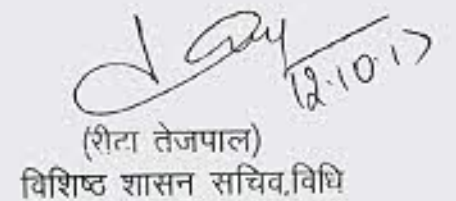 12.10.17
(रीटा तेजपाल)
विशिष्ट शासन सचिव,विधि